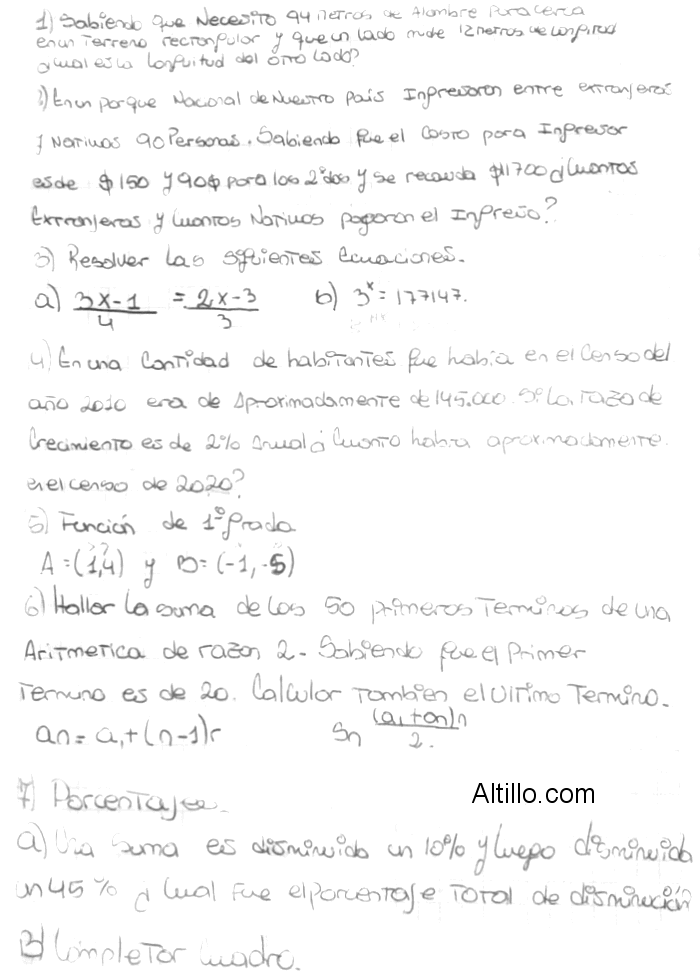 1) Sabiendo que Necesito 94 metros de Alambre Para cerca
en un Terreno rectangular y que un lado mide 12 metros de longitud
¿Cual es la longuitud del otro lado?
2) En un parque Nacional de Nuestro País Ingresaron entre extranjeros
y Nativos 90 Personas. Sabiendo que el Costo para Ingresar
es de $150 y 90$ para los 2°dos y se recauda $11700 ¿Cuantos
Extranjeros y Cuantos Nativos pagaron el Ingreso?
3) Resolver Las siguientes Ecuaciones.
a) (3x-1)/4 = (2x-3)/3 b) 3^x = 177147.
4) En una Cantidad de habitantes que había en el Censo del
año 2010 era de Aproximadamente de 145.000. Si La Taza de
Crecimiento es de 2% Anual ¿Cuanto habra aproximadamente
en el censo de 2020?
5) Función de 1° grado
A = (1,4) y B = (-1,-5)
6) Hallar La suma de los 50 primeros Terminos de una
Aritmetica de razon 2. Sabiendo que el Primer
Termino es de 20. Calcular Tambien el Ultimo Termino.
an = a1 + (n-1)r Sn (a1+an)n/2.
7) Porcentajes.
Altillo.com
a) Una suma es disminuida un 10% y luego disminuida
un 45% ¿Cual fue el porcentaje Total de disminución
B) Completar Cuadro.